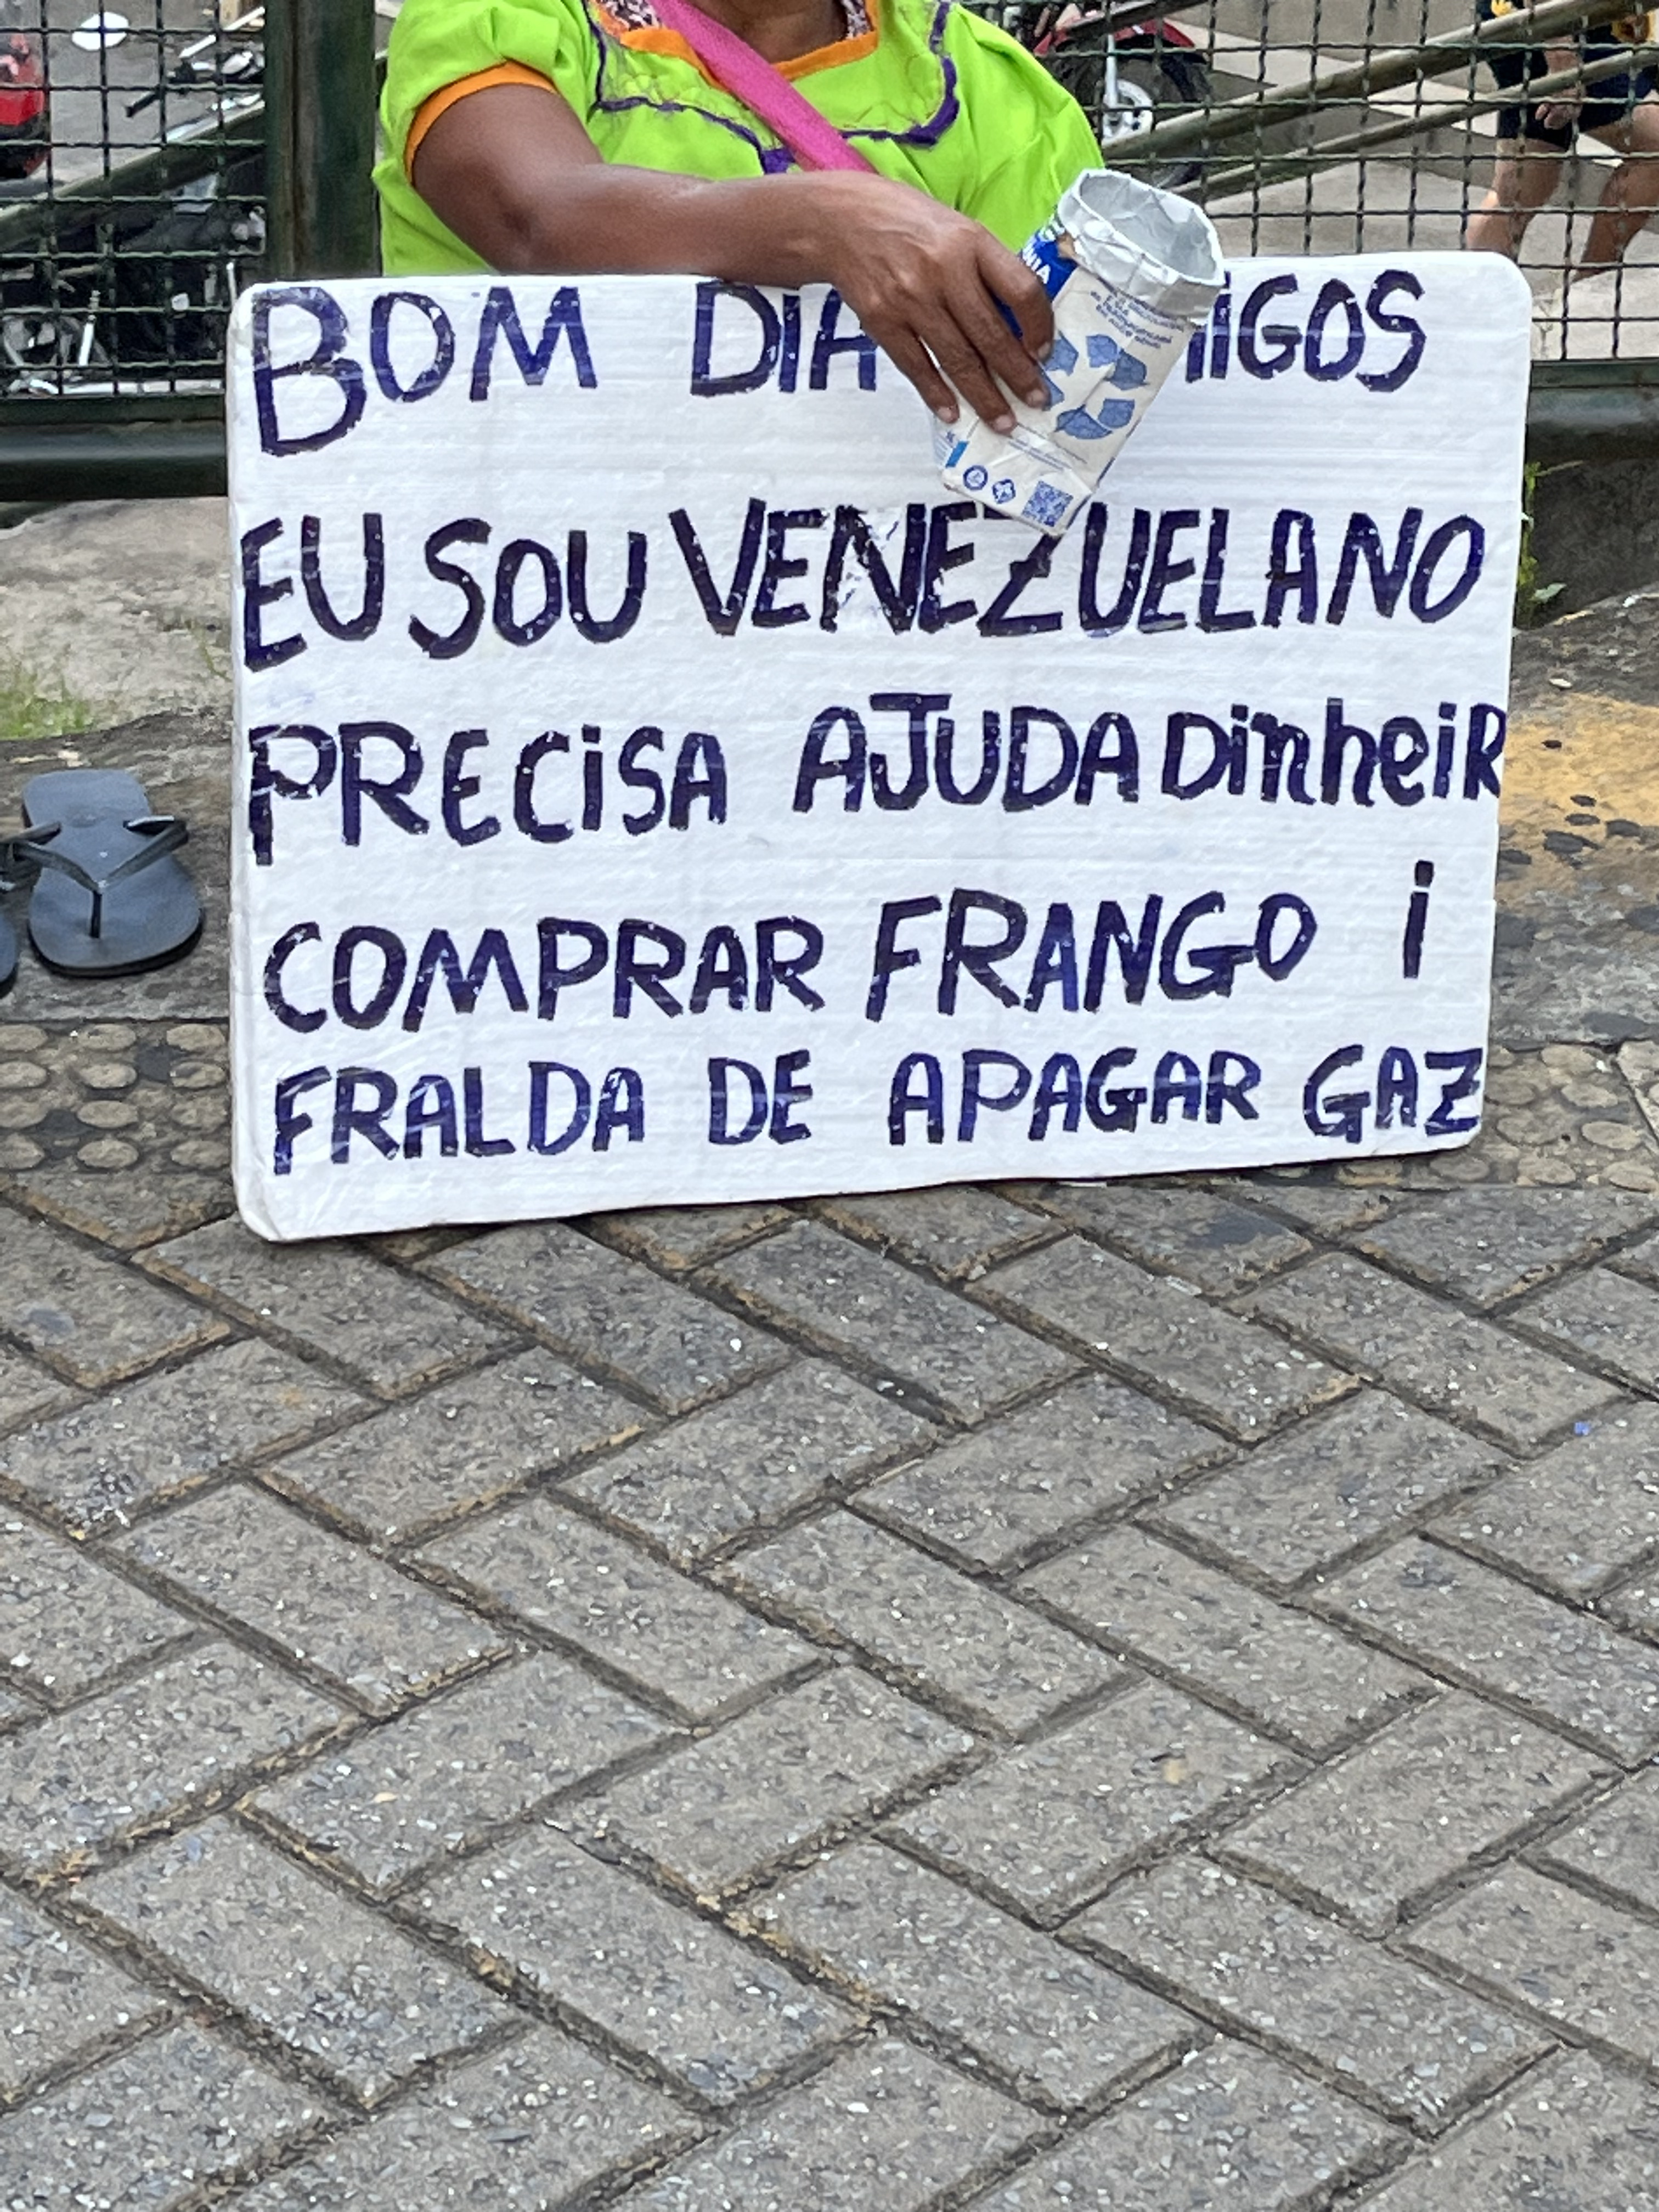 BOM DIA MIGOS
EU SOU VENEZUELANO
PRECISA AJUDA DinheiR
COMPRAR FRANGO i
FRALDA DE APAGAR GAZ